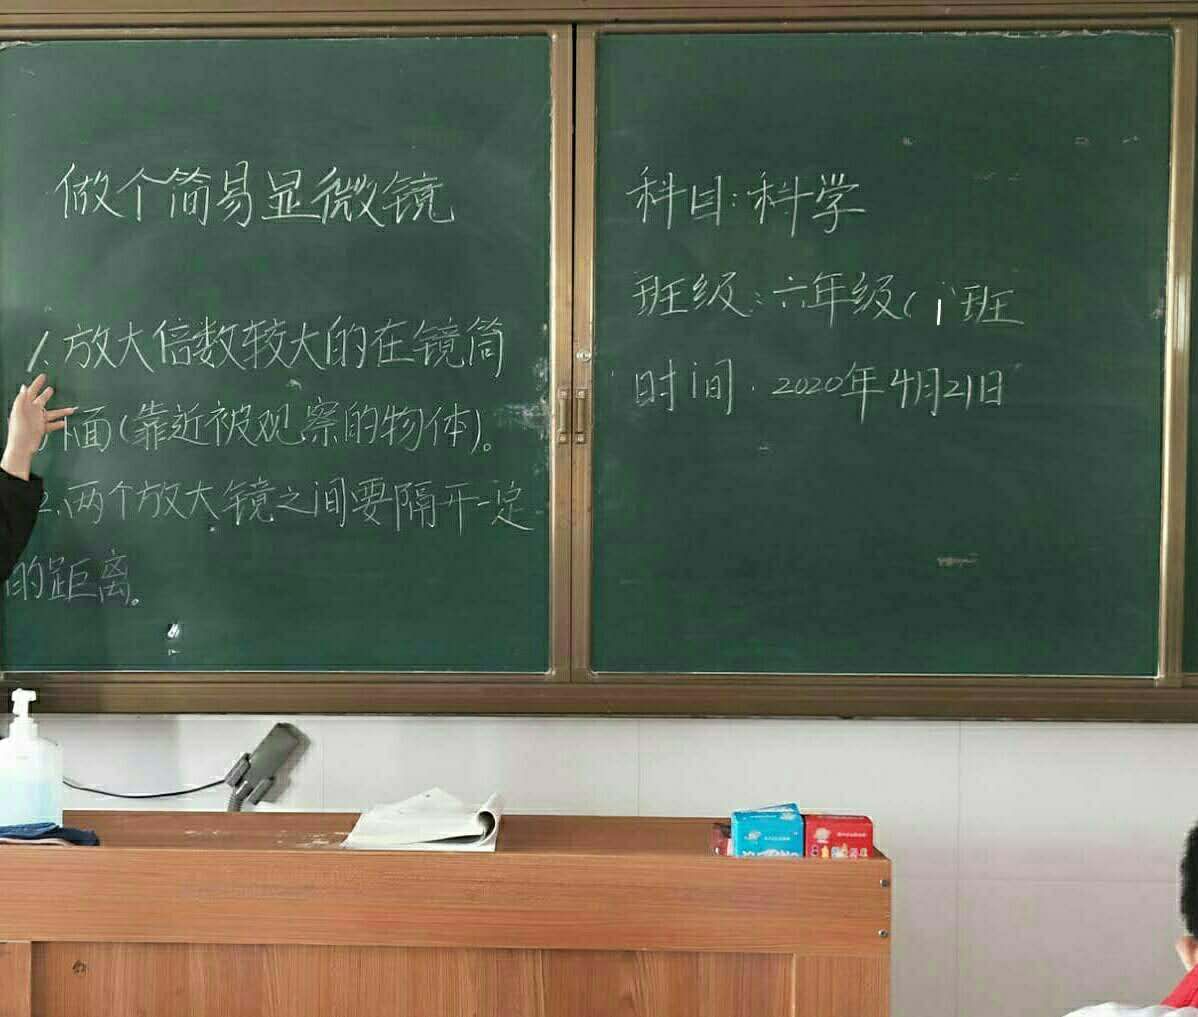 做个简易显微镜
1.放大倍数较大的在镜筒
下面(靠近被观察的物体)。
2.两个放大镜之间要隔开一定
的距离。
科目:科学
班级:六年级(1)班
时间:2020年4月21日